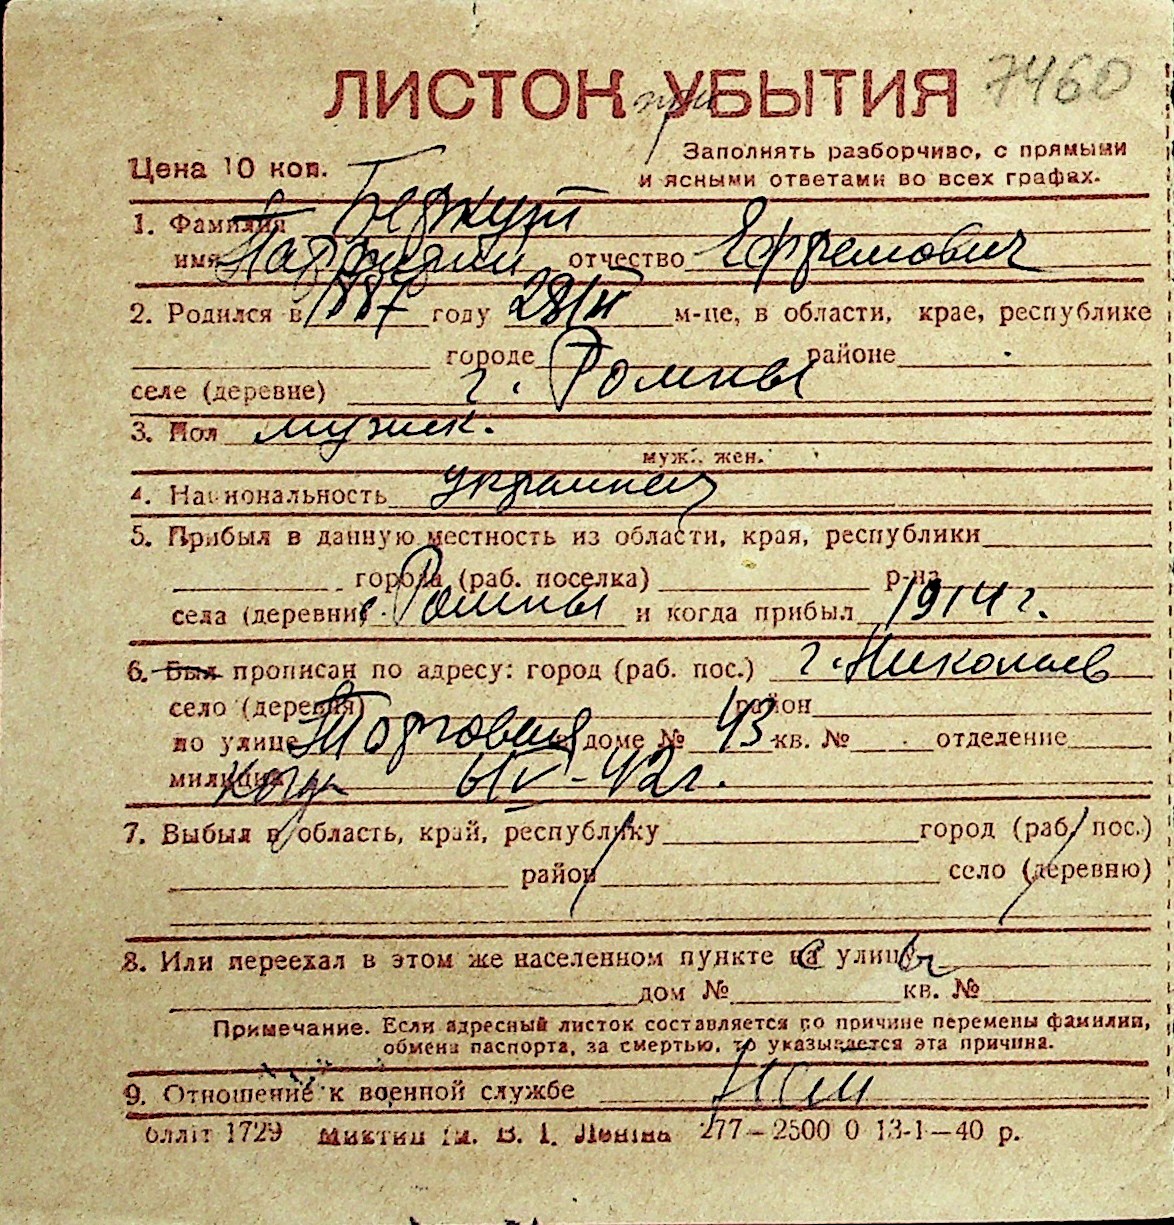 ЛИСТОК УБЫТИЯ 7460
при
Цена 10 коп.
Заполнять разборчиво, с прямыми
и ясными ответами во всех графах.
1. Фамилия Беркут
имя отчество Ефремович
2. Родился в 1887 году 28/II м-це, в области, крае, республике
городе районе
селе (деревне) г. Ромны
3. Пол мужск.
муж. жен.
4. Национальность украинец
5. Прибыл в данную местность из области, края, республики
города (раб. поселка) р-на
села (деревни) г. Ромны и когда прибыл 1914 г.
6. Был прописан по адресу: город (раб. пос.) г. Николаев
село (деревня) район
по улице Торговая доме № 43 кв. № отделение
милиции
7. Выбыл в область, край, республику город (раб. пос.)
район село (деревню)
8. Или переехал в этом же населенном пункте на улицу
дом № кв. №
Примечание. Если адресный листок составляется по причине перемены фамилии,
обмена паспорта, за смертью, то указывается эта причина.
9. Отношение к военной службе
1729 Ленiна 277—2500 0 13-1—40 р.